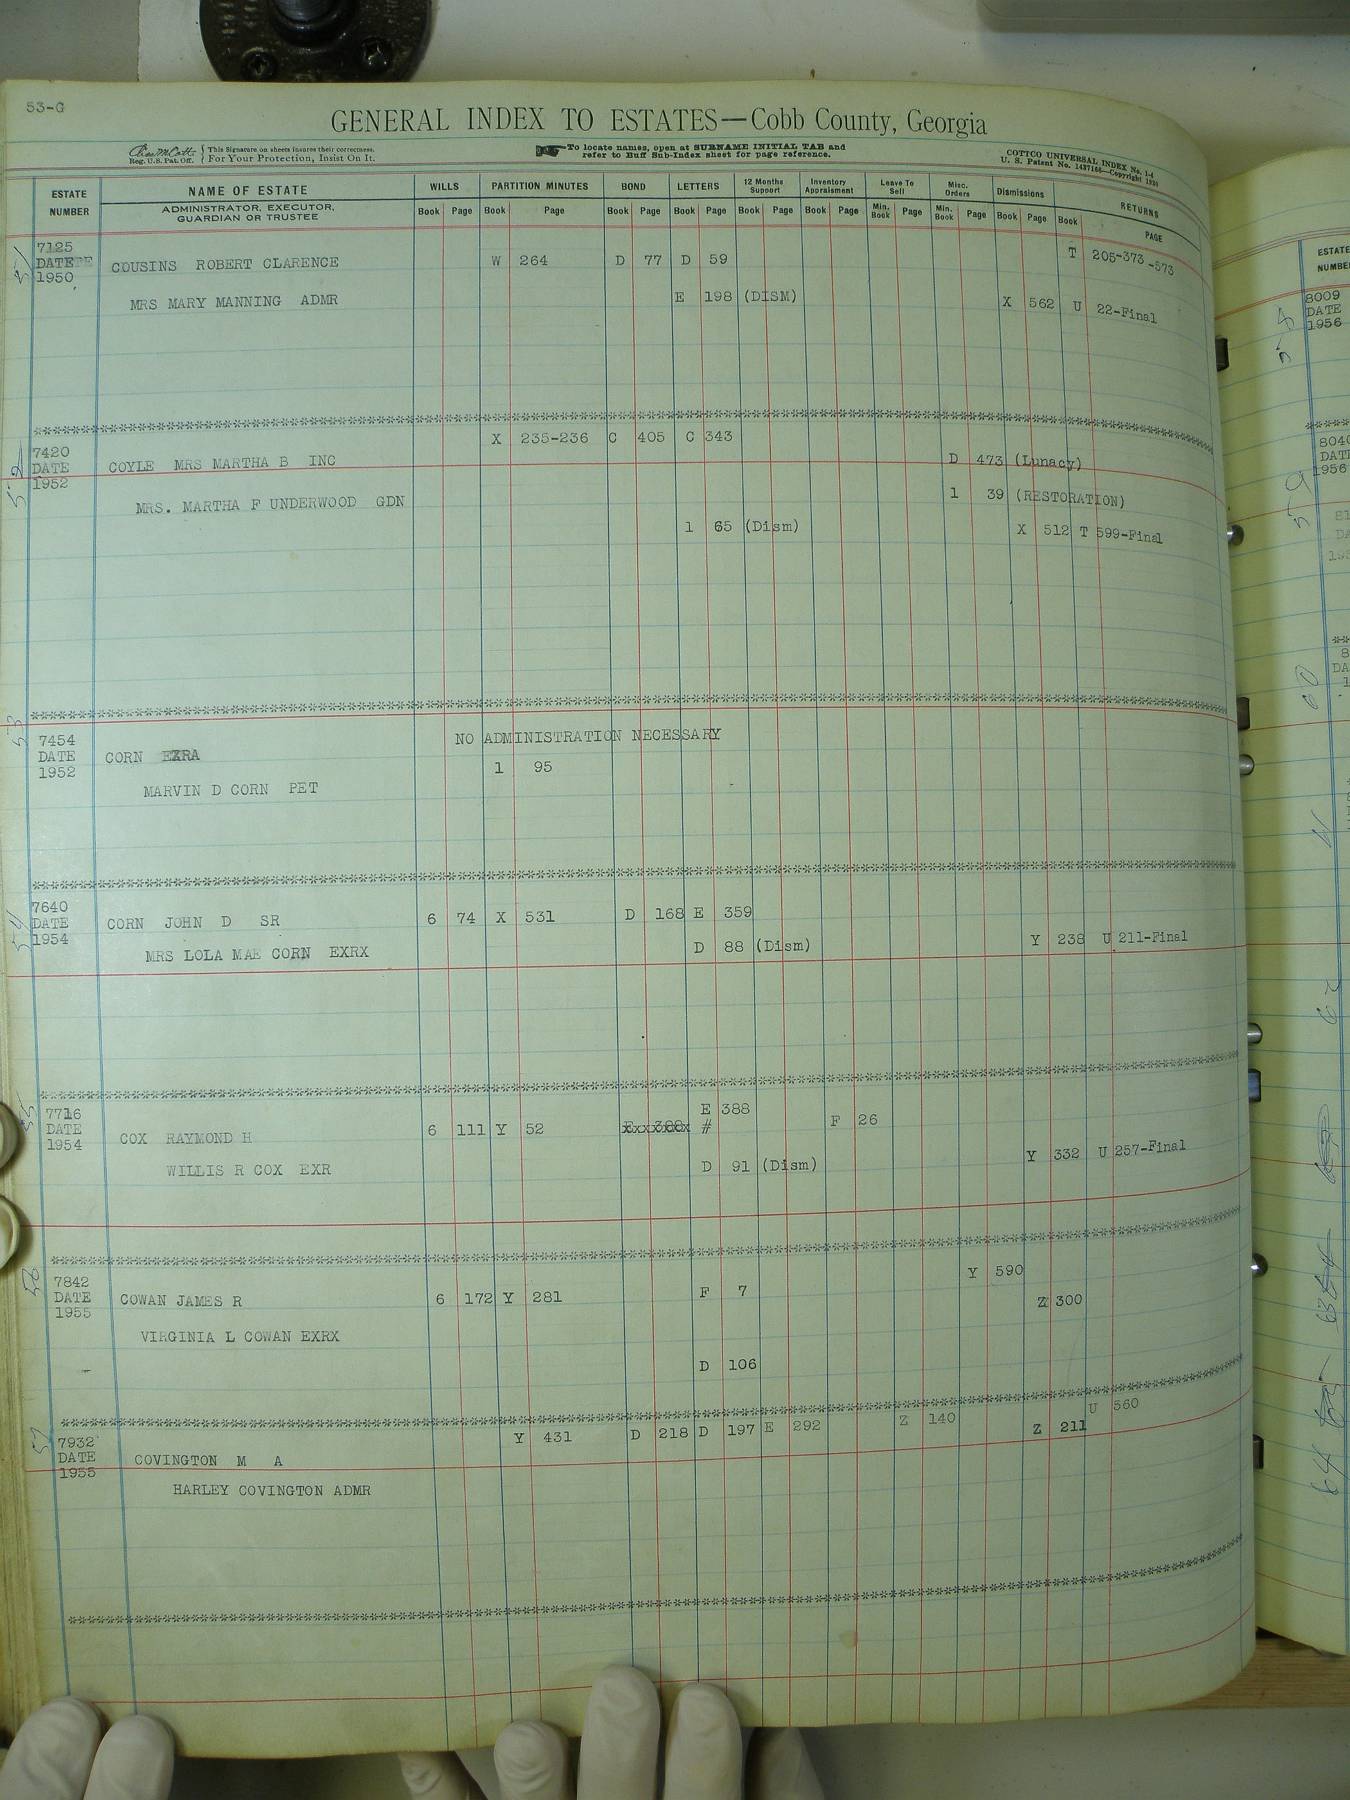 53-G
GENERAL INDEX TO ESTATES—Cobb County, Georgia
Reg. U.S. Pat. Off. This Signature on sheets insures their correctness. For Your Protection, Insist On It.
To locate names, open at SURNAME INITIAL TAB and refer to Buff Sub-Index sheet for page reference.
COTTCO UNIVERSAL INDEX No. 1-4
U. S. Patent No. 1437166—Copyright 1930
ESTATE NUMBER NAME OF ESTATE WILLS PARTITION MINUTES BOND LETTERS 12 Months Support Inventory Appraisment Leave To Sell Misc. Orders Dismissions RETURNS
ADMINISTRATOR, EXECUTOR, GUARDIAN OR TRUSTEE Book Page Book Page Book Page Book Page Book Page Book Page Min. Book Page Min. Book Page Book Page Book PAGE
51
7125
DATE
1950
COUSINS ROBERT CLARENCE W 264 D 77 D 59 T 205-373-573
MRS MARY MANNING ADMR E 198 (DISM) X 562 U 22-Final
52
7420
DATE
1952
X 235-236 C 405 C 343
COYLE MRS MARTHA B INC D 473 (Lunacy)
MRS. MARTHA F UNDERWOOD GDN 1 39 (RESTORATION)
1 65 (Dism) X 512 T 599-Final
53
7454
DATE
1952
NO ADMINISTRATION NECESSARY
CORN EZRA 1 95
MARVIN D CORN PET
54
7640
DATE
1954
CORN JOHN D SR 6 74 X 531 D 168 E 359
MRS LOLA MAE CORN EXRX D 88 (Dism) Y 238 U 211-Final
55
7716
DATE
1954
E 388
COX RAYMOND H 6 111 Y 52 # F 26
WILLIS R COX EXR D 91 (Dism) Y 332 U 257-Final
56
7842
DATE
1955
Y 590
COWAN JAMES R 6 172 Y 281 F 7 Z 300
VIRGINIA L COWAN EXRX
D 106
57
7932
DATE
1955
Y 431 D 218 D 197 E 292 Z 140 Z 211 U 560
COVINGTON M A
HARLEY COVINGTON ADMR
ESTATE
NUMBER
8009
DATE
1956
58
8040
DATE
1956
59
60
62
64